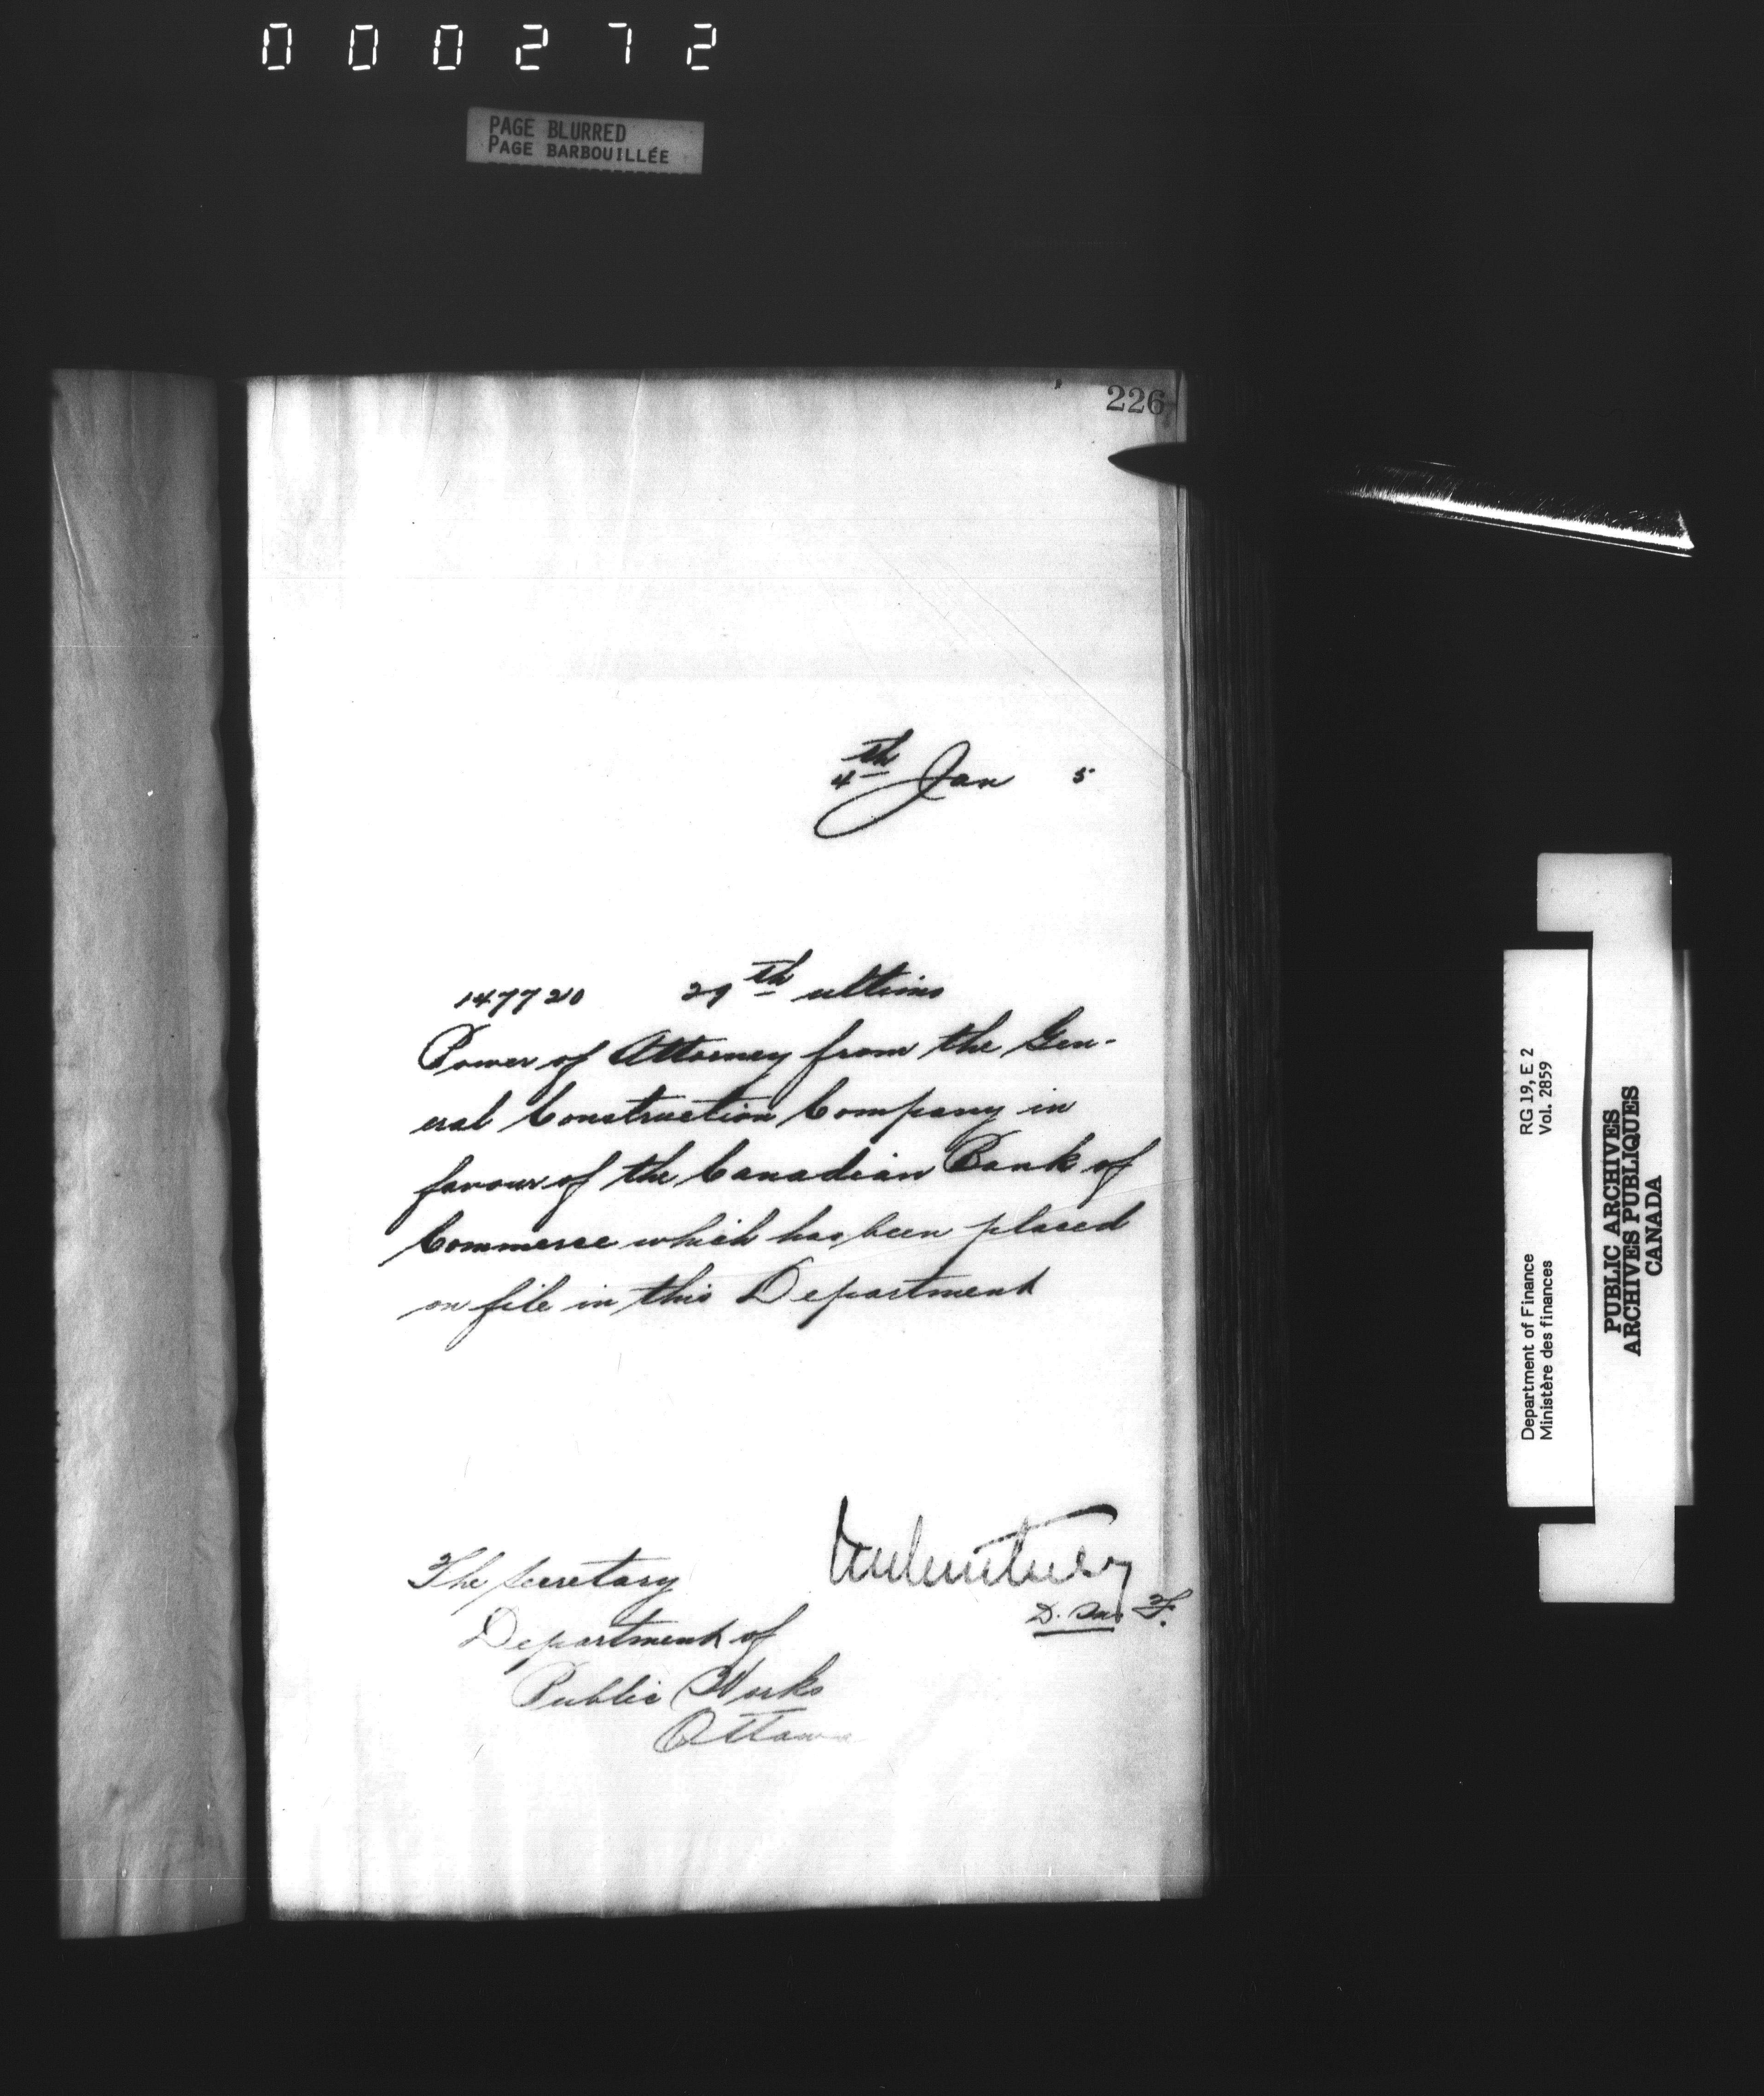 000272
PAGE BLURRED
PAGE BARBOUILLÉE
226
4th Jan 5
147720 29th ultimo
Power of Attorney from the Gen-
eral Construction Company in
favour of the Canadian Bank of
Commerce which has been placed
on file in this Department
D. M. F.
The Secretary
Department of
Public Works
Ottawa
Department of Finance RG 19, E 2
Ministère des finances Vol. 2859
PUBLIC ARCHIVES
ARCHIVES PUBLIQUES
CANADA